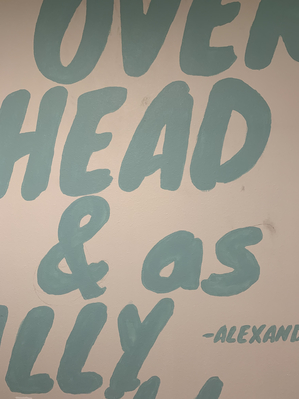 OVER
HEAD
& as
ILLY
-ALEXAND